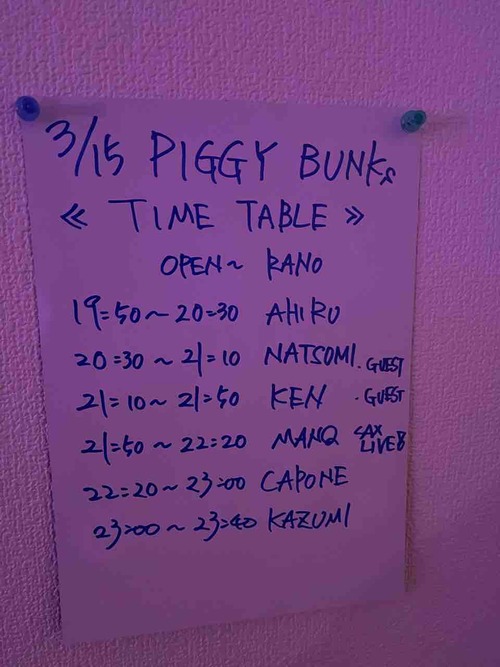 3/15 PIGGY BUNKs
《 TIME TABLE 》
OPEN~ RANO
19:50~20:30 AHIRU
20:30~21:10 NATSOMI. GUEST
21:10~21:50 KEN . GUEST
21:50~22:20 MANQ SAX LIVE
22:20~23:00 CAPONE
23:00~23:40 KAZUMI